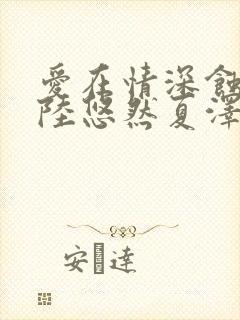 愛在情深蝕
陸悠然夏澤
安 達